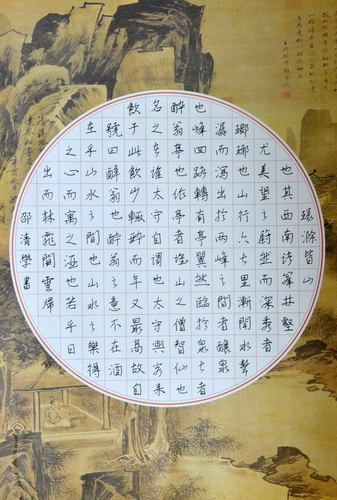 環滁皆山
也其西南諸峯林壑
尤美望之蔚然而深秀者
瑯瑯也山行六七里漸聞水聲
潺潺而瀉出於兩峰之間者釀泉
也峰回路轉有亭翼然臨於泉上者
醉翁亭也作亭者誰山之僧智仙也
名之者誰太守自謂也太守與客來
飲于此飲少輒醉而年又最高故自
號曰醉翁也醉翁之意不在酒
在乎山水之間也山水之樂得
之心而寓之酒也若乎日
出而林霏開雲歸
邵清學書